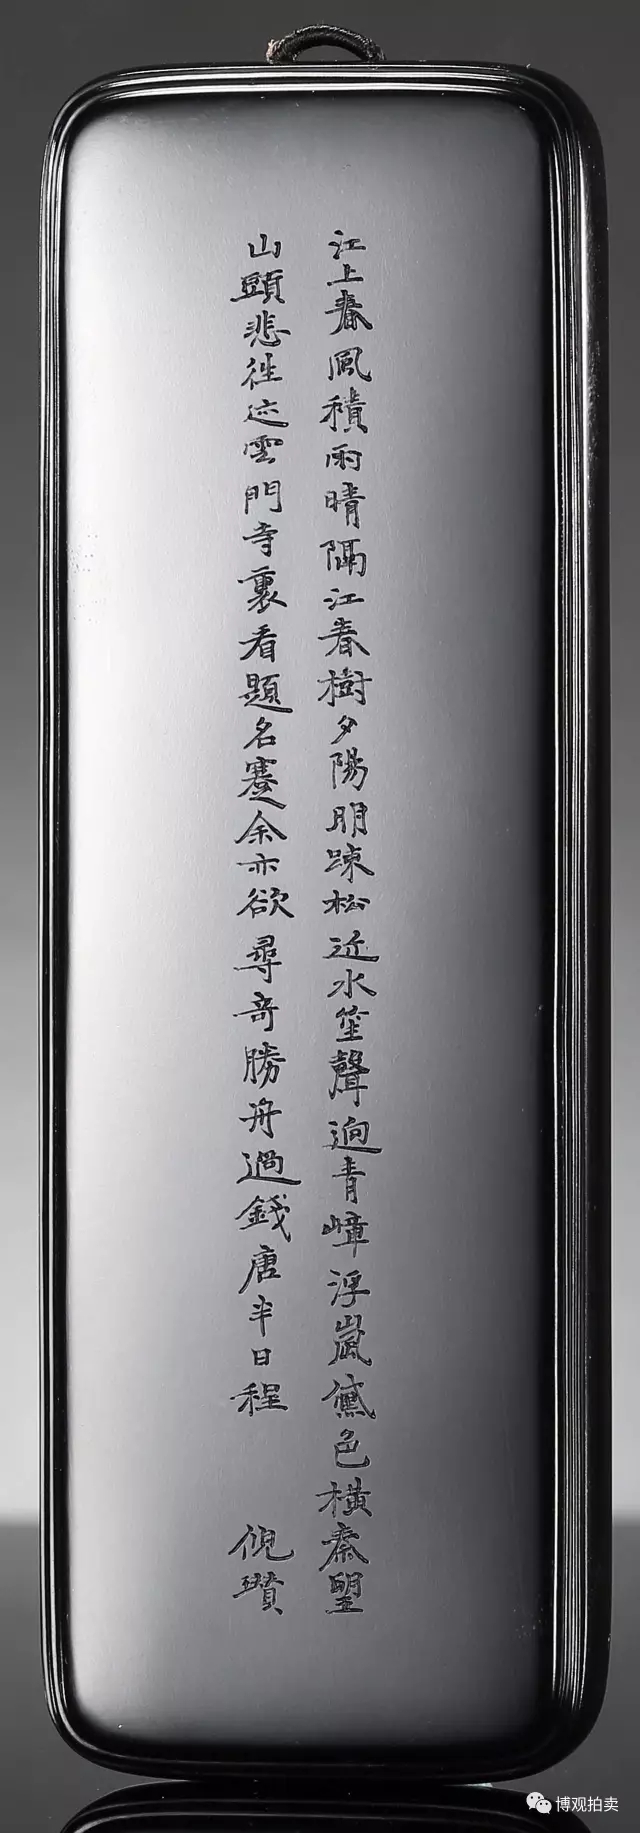 江上春風積雨晴隔江春樹夕陽明踈松近水笙聲逈青嶂浮嵐黛色橫秦望
山頭悲往迹雲門寺裏看題名蹇余亦欲尋奇勝舟過錢唐半日程 倪瓚
博观拍卖